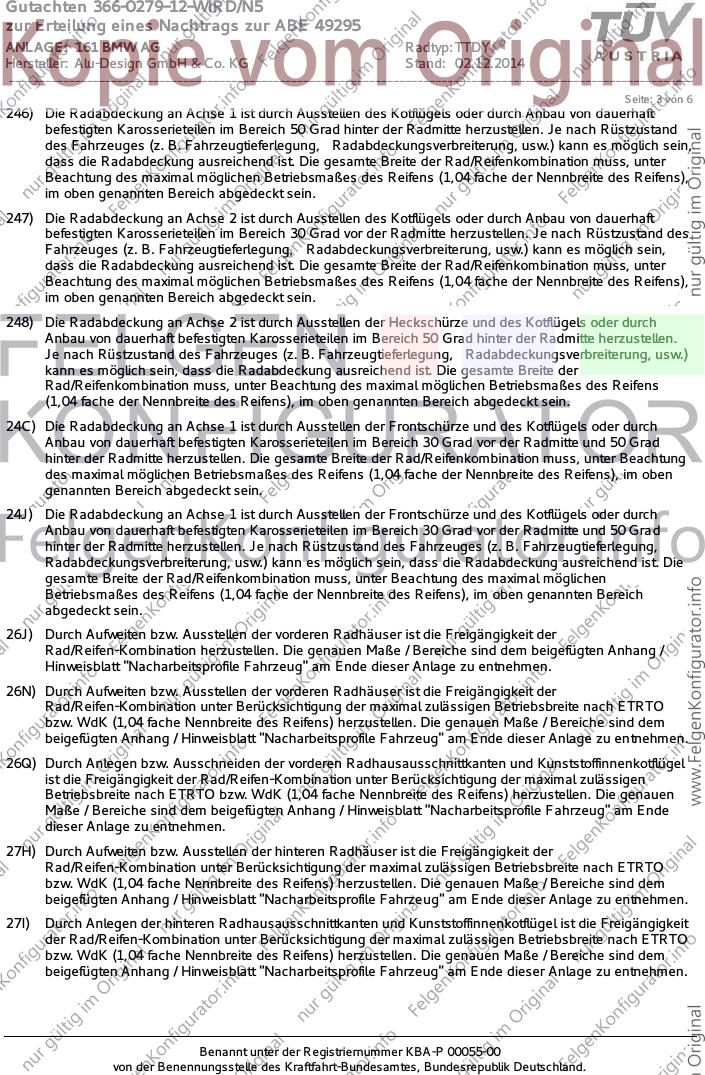 Gutachten 366-0279-12-WIRD/N5
zur Erteilung eines Nachtrags zur ABE 49295
ANLAGE: 161 BMW AG Radtyp: TTDY
Hersteller: Alu-Design GmbH & Co. KG Stand: 02.12.2014
TÜV
AUSTRIA
Kopie vom Original
Seite: 3 von 6
246) Die Radabdeckung an Achse 1 ist durch Ausstellen des Kotflügels oder durch Anbau von dauerhaft
befestigten Karosserieteilen im Bereich 50 Grad hinter der Radmitte herzustellen. Je nach Rüstzustand
des Fahrzeuges (z. B. Fahrzeugtieferlegung, Radabdeckungsverbreiterung, usw.) kann es möglich sein,
dass die Radabdeckung ausreichend ist. Die gesamte Breite der Rad/Reifenkombination muss, unter
Beachtung des maximal möglichen Betriebsmaßes des Reifens (1,04 fache der Nennbreite des Reifens),
im oben genannten Bereich abgedeckt sein.
247) Die Radabdeckung an Achse 2 ist durch Ausstellen des Kotflügels oder durch Anbau von dauerhaft
befestigten Karosserieteilen im Bereich 30 Grad vor der Radmitte herzustellen. Je nach Rüstzustand des
Fahrzeuges (z. B. Fahrzeugtieferlegung, Radabdeckungsverbreiterung, usw.) kann es möglich sein,
dass die Radabdeckung ausreichend ist. Die gesamte Breite der Rad/Reifenkombination muss, unter
Beachtung des maximal möglichen Betriebsmaßes des Reifens (1,04 fache der Nennbreite des Reifens),
im oben genannten Bereich abgedeckt sein.
248) Die Radabdeckung an Achse 2 ist durch Ausstellen der Heckschürze und des Kotflügels oder durch
Anbau von dauerhaft befestigten Karosserieteilen im Bereich 50 Grad hinter der Radmitte herzustellen.
Je nach Rüstzustand des Fahrzeuges (z. B. Fahrzeugtieferlegung, Radabdeckungsverbreiterung, usw.)
kann es möglich sein, dass die Radabdeckung ausreichend ist. Die gesamte Breite der
Rad/Reifenkombination muss, unter Beachtung des maximal möglichen Betriebsmaßes des Reifens
(1,04 fache der Nennbreite des Reifens), im oben genannten Bereich abgedeckt sein.
24C) Die Radabdeckung an Achse 1 ist durch Ausstellen der Frontschürze und des Kotflügels oder durch
Anbau von dauerhaft befestigten Karosserieteilen im Bereich 30 Grad vor der Radmitte und 50 Grad
hinter der Radmitte herzustellen. Die gesamte Breite der Rad/Reifenkombination muss, unter Beachtung
des maximal möglichen Betriebsmaßes des Reifens (1,04 fache der Nennbreite des Reifens), im oben
genannten Bereich abgedeckt sein.
24J) Die Radabdeckung an Achse 1 ist durch Ausstellen der Frontschürze und des Kotflügels oder durch
Anbau von dauerhaft befestigten Karosserieteilen im Bereich 30 Grad vor der Radmitte und 50 Grad
hinter der Radmitte herzustellen. Je nach Rüstzustand des Fahrzeuges (z. B. Fahrzeugtieferlegung,
Radabdeckungsverbreiterung, usw.) kann es möglich sein, dass die Radabdeckung ausreichend ist. Die
gesamte Breite der Rad/Reifenkombination muss, unter Beachtung des maximal möglichen
Betriebsmaßes des Reifens (1,04 fache der Nennbreite des Reifens), im oben genannten Bereich
abgedeckt sein.
26J) Durch Aufweiten bzw. Ausstellen der vorderen Radhäuser ist die Freigängigkeit der
Rad/Reifen-Kombination herzustellen. Die genauen Maße / Bereiche sind dem beigefügten Anhang /
Hinweisblatt "Nacharbeitsprofile Fahrzeug" am Ende dieser Anlage zu entnehmen.
26N) Durch Aufweiten bzw. Ausstellen der vorderen Radhäuser ist die Freigängigkeit der
Rad/Reifen-Kombination unter Berücksichtigung der maximal zulässigen Betriebsbreite nach ETRTO
bzw. WdK (1,04 fache Nennbreite des Reifens) herzustellen. Die genauen Maße / Bereiche sind dem
beigefügten Anhang / Hinweisblatt "Nacharbeitsprofile Fahrzeug" am Ende dieser Anlage zu entnehmen.
26Q) Durch Anlegen bzw. Ausschneiden der vorderen Radhausausschnittkanten und Kunststoffinnenkotflügel
ist die Freigängigkeit der Rad/Reifen-Kombination unter Berücksichtigung der maximal zulässigen
Betriebsbreite nach ETRTO bzw. WdK (1,04 fache Nennbreite des Reifens) herzustellen. Die genauen
Maße / Bereiche sind dem beigefügten Anhang / Hinweisblatt "Nacharbeitsprofile Fahrzeug" am Ende
dieser Anlage zu entnehmen.
27H) Durch Aufweiten bzw. Ausstellen der hinteren Radhäuser ist die Freigängigkeit der
Rad/Reifen-Kombination unter Berücksichtigung der maximal zulässigen Betriebsbreite nach ETRTO
bzw. WdK (1,04 fache Nennbreite des Reifens) herzustellen. Die genauen Maße / Bereiche sind dem
beigefügten Anhang / Hinweisblatt "Nacharbeitsprofile Fahrzeug" am Ende dieser Anlage zu entnehmen.
27I) Durch Anlegen der hinteren Radhausausschnittkanten und Kunststoffinnenkotflügel ist die Freigängigkeit
der Rad/Reifen-Kombination unter Berücksichtigung der maximal zulässigen Betriebsbreite nach ETRTO
bzw. WdK (1,04 fache Nennbreite des Reifens) herzustellen. Die genauen Maße / Bereiche sind dem
beigefügten Anhang / Hinweisblatt "Nacharbeitsprofile Fahrzeug" am Ende dieser Anlage zu entnehmen.
Benannt unter der Registriernummer KBA-P 00055-00
von der Benennungsstelle des Kraftfahrt-Bundesamtes, Bundesrepublik Deutschland.
FELGEN
KONFIGURATOR
FelgenKonfigurator.info
nur gültig im Original
www.FelgenKonfigurator.info